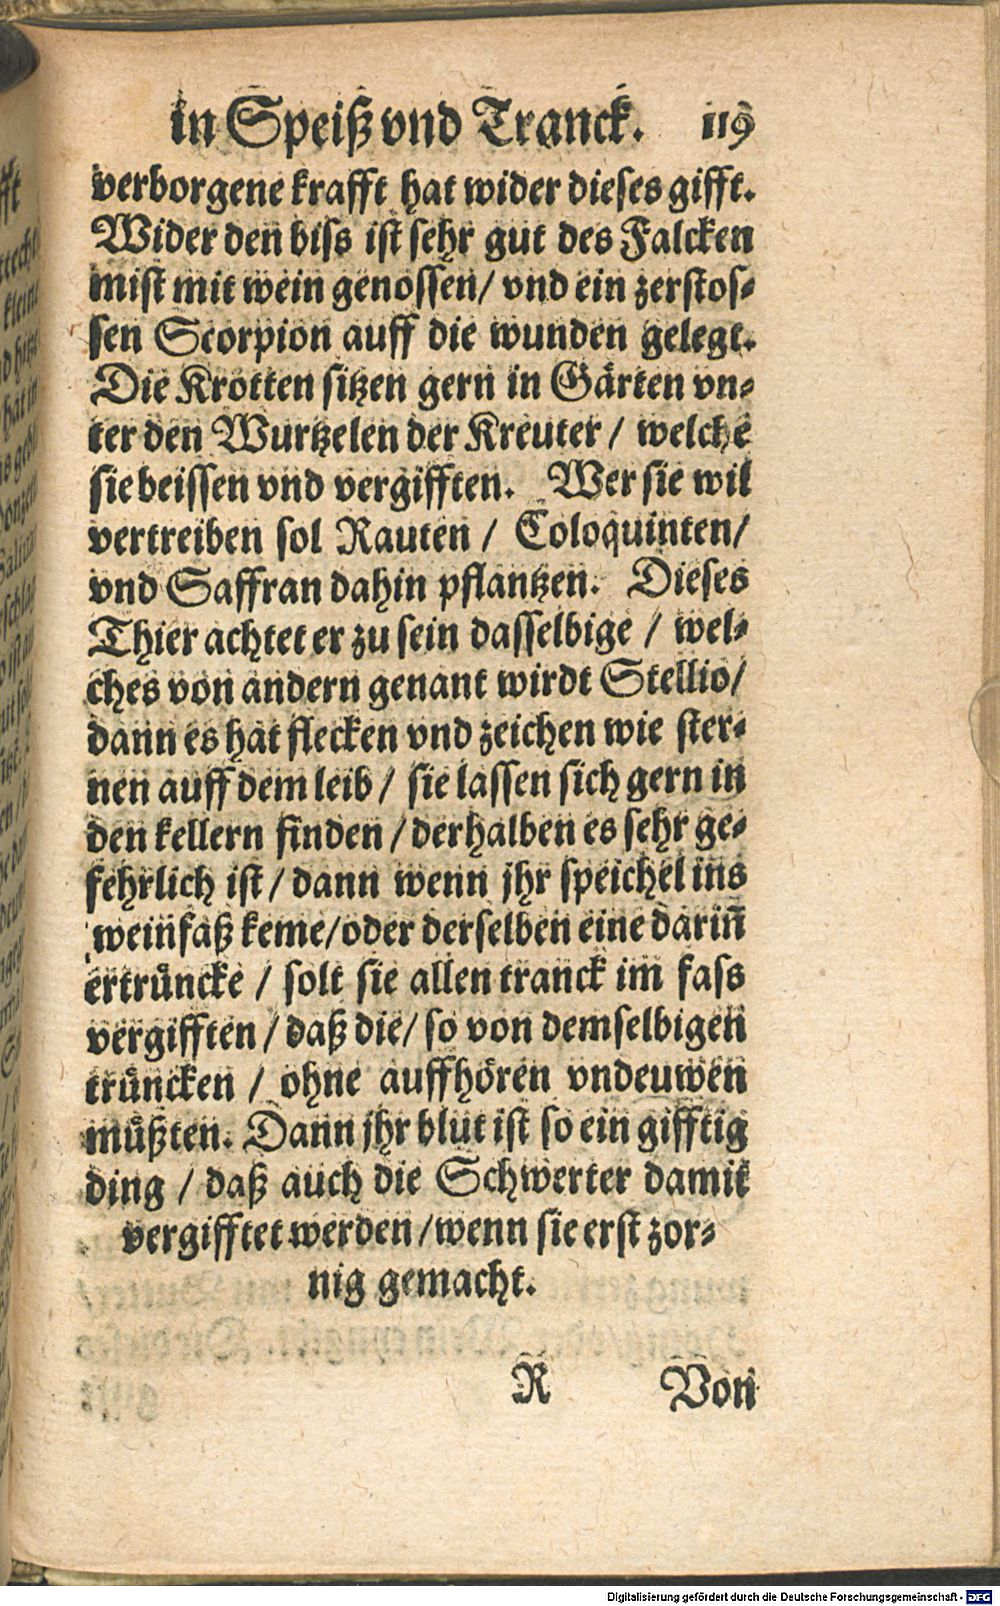 in Speiß vnd Tranck. 119
verborgene krafft hat wider dieses gifft.
Wider den biss ist sehr gut des Falcken
mist mit wein genossen/ vnd ein zerstos-
sen Scorpion auff die wunden gelegt.
Die Krotten sitzen gern in Gärten vn-
ter den Wurtzelen der Kreuter / welche
sie beissen vnd vergifften. Wer sie wil
vertreiben sol Rauten / Coloquinten/
vnd Saffran dahin pflantzen. Dieses
Thier achtet er zu sein dasselbige / wel-
ches von andern genant wirdt Stellio/
dann es hat flecken vnd zeichen wie ster-
nen auff dem leib / sie lassen sich gern in
den kellern finden / derhalben es sehr ge-
fehrlich ist / dann wenn jhr speichel ins
weinfaß keme/oder derselben eine darin̄
ertrůncke / solt sie allen tranck im fass
vergifften / daß die/ so von demselbigen
trůncken / ohne auffhören vndeuwen
můßten. Dann jhr blut ist so ein gifftig
ding / daß auch die Schwerter damit
vergifftet werden /wenn sie erst zor-
nig gemacht.
R Von
Digitalisierung gefördert durch die Deutsche Forschungsgemeinschaft - DFG